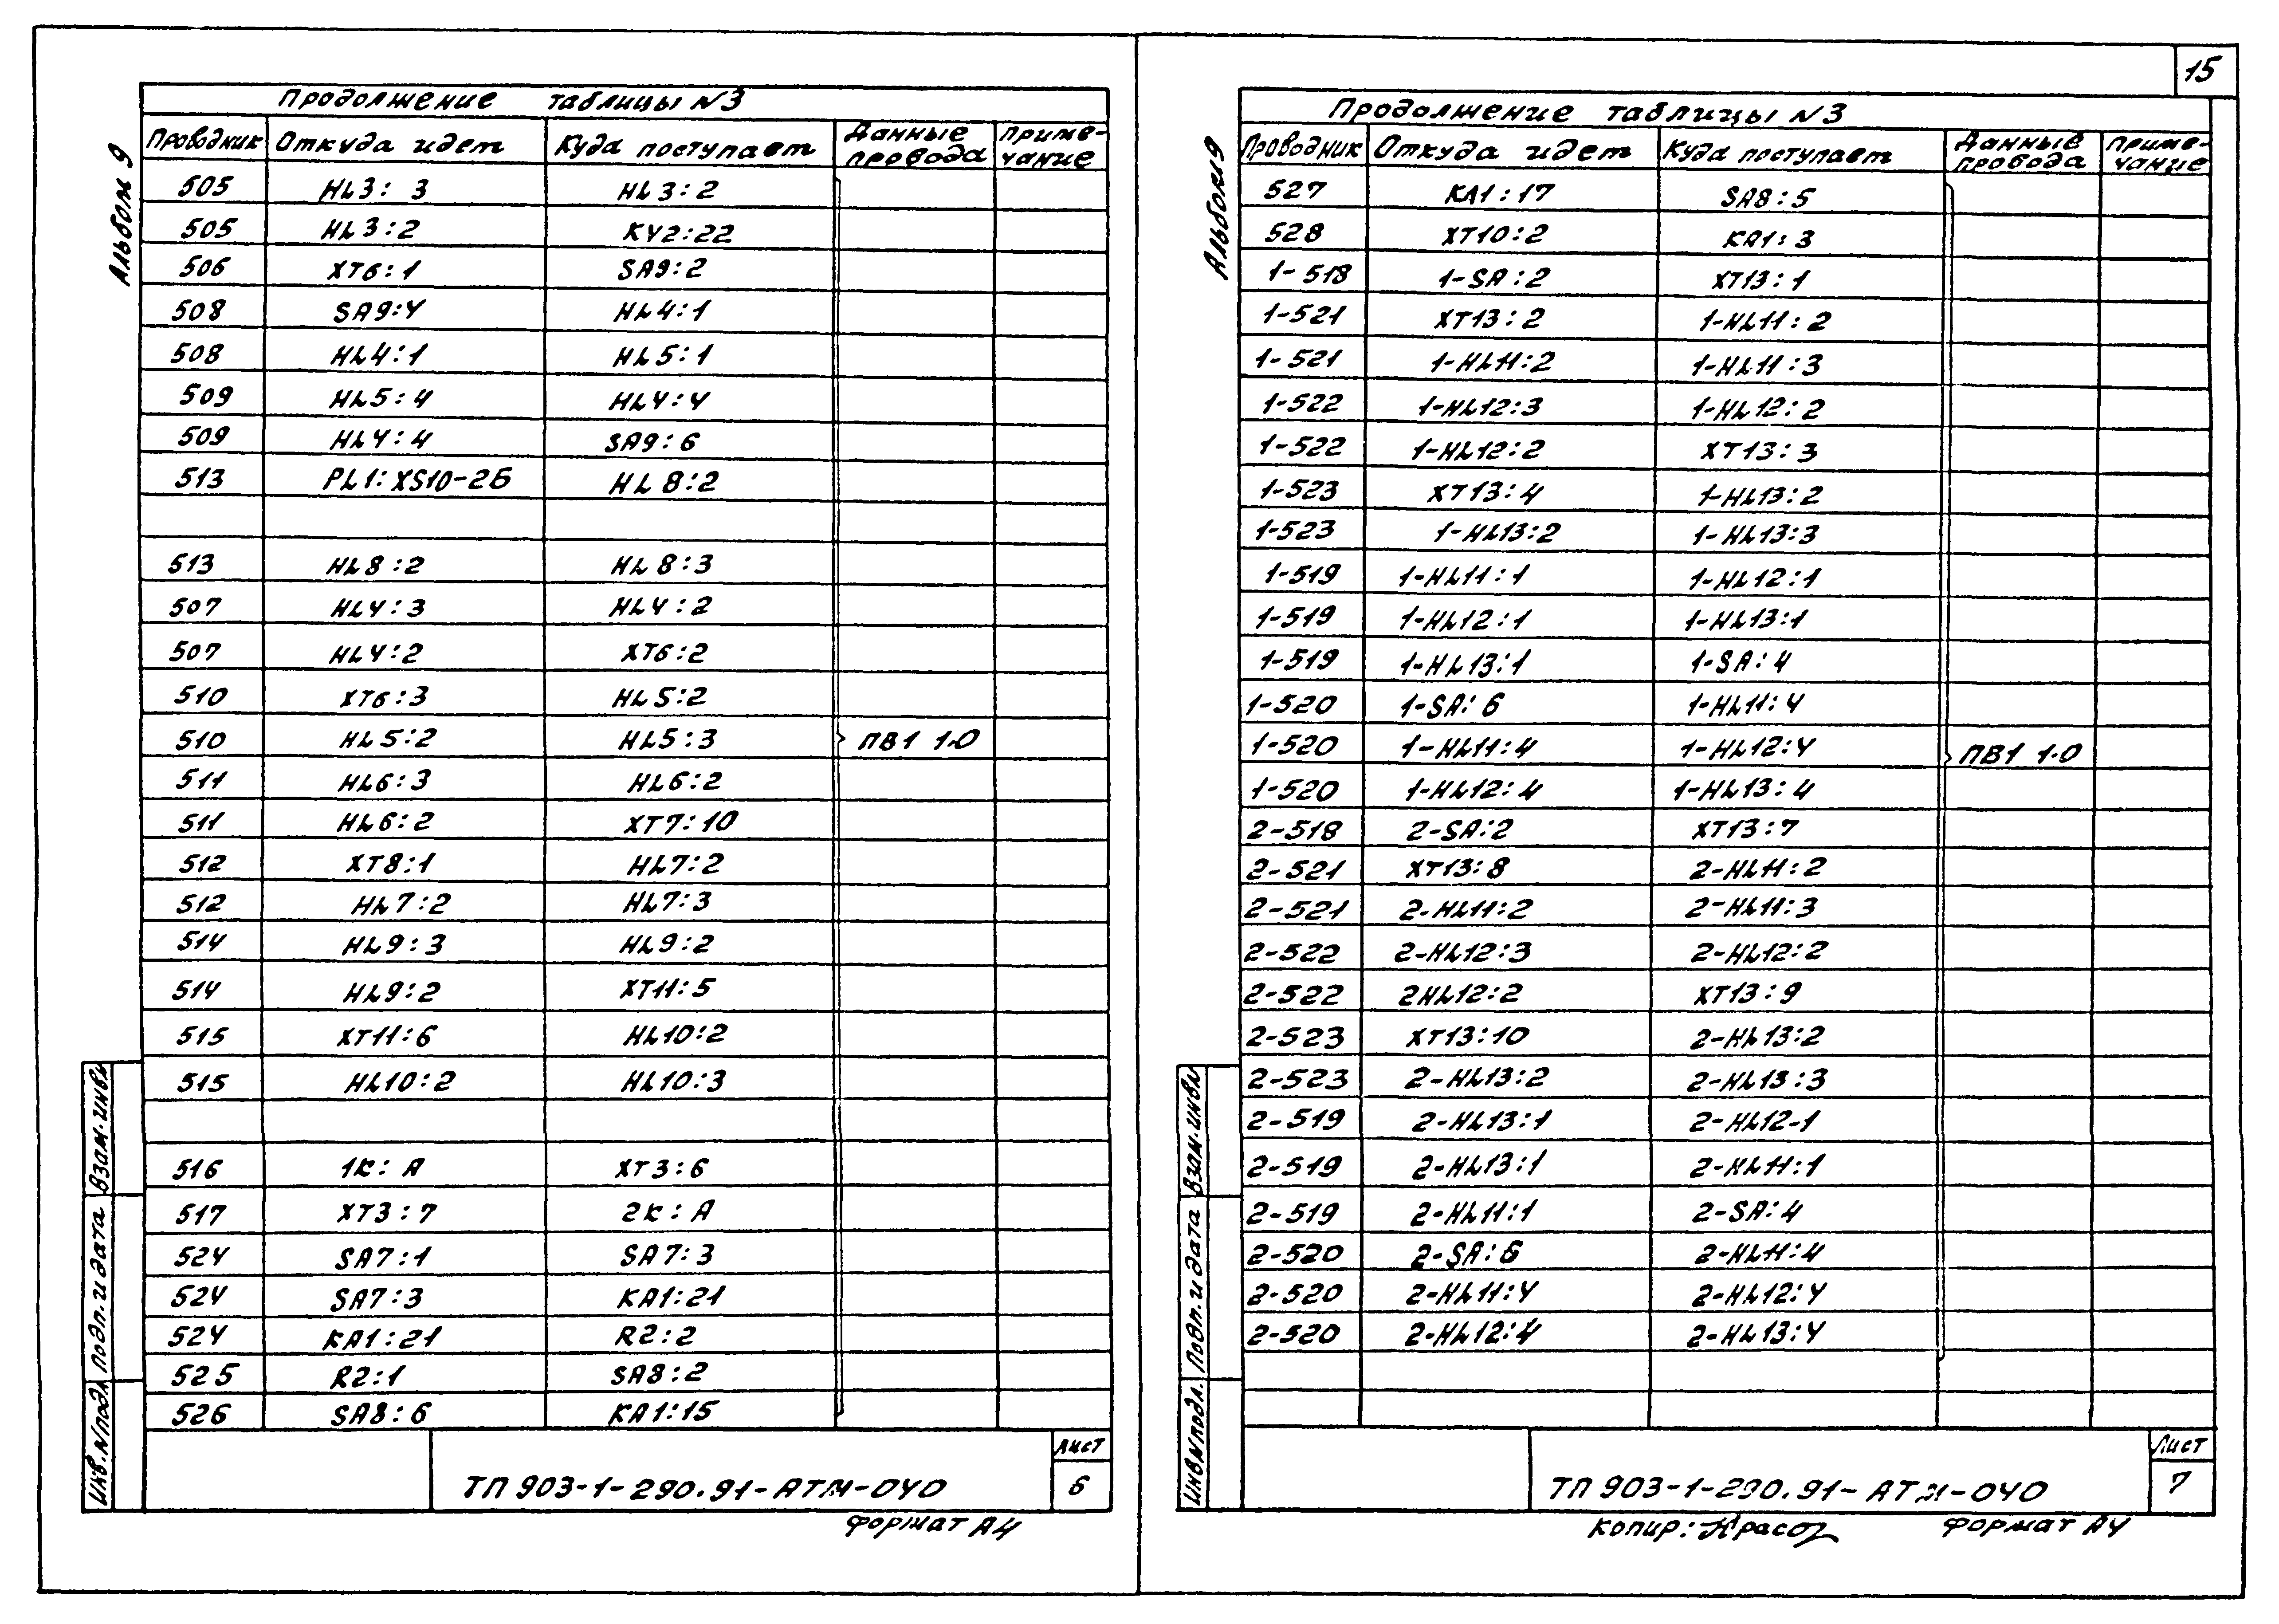 15
Альбом 9
Продолжение таблицы №3
Проводник Откуда идет Куда поступает Данные провода Приме-чание
505 HL3: 3 HL3:2
505 HL3:2 KY2:22
506 XT6:1 SA9:2
508 SA9:4 HL4:1
508 HL4:1 HL5:1
509 HL5:4 HL4:4
509 HL4:4 SA9:6
513 PL1:XS10-2Б HL8:2
513 HL8:2 HL8:3
507 HL4:3 HL4:2
507 HL4:2 XT6:2
510 XT6:3 HL5:2
510 HL5:2 HL5:3 ПВ1 1.0
511 HL6:3 HL6:2
511 HL6:2 XT7:10
512 XT8:1 HL7:2
512 HL7:2 HL7:3
514 HL9:3 HL9:2
514 HL9:2 XT11:5
515 XT11:6 HL10:2
515 HL10:2 HL10:3
516 1К: А XT3:6
517 XT3:7 2К: А
524 SA7:1 SA7:3
524 SA7:3 KA1:21
524 KA1:21 R2:2
525 R2:1 SA8:2
526 SA8:6 KA1:15
Взам.инв№
Подп. и дата
Инв.№подл.
ТП 903-1-290.91-АТМ-040
Лист
6
Формат А4
Альбом 9
Продолжение таблицы №3
Проводник Откуда идет Куда поступает Данные провода Приме-чание
527 KA1:17 SA8:5
528 XT10:2 KA1:3
1-518 1-SA:2 XT13:1
1-521 XT13:2 1-HL11:2
1-521 1-HL11:2 1-HL11:3
1-522 1-HL12:3 1-HL12:2
1-522 1-HL12:2 XT13:3
1-523 XT13:4 1-HL13:2
1-523 1-HL13:2 1-HL13:3
1-519 1-HL11:1 1-HL12:1
1-519 1-HL12:1 1-HL13:1
1-519 1-HL13:1 1-SA:4
1-520 1-SA:6 1-HL11:4
1-520 1-HL11:4 1-HL12:4 ПВ1 1.0
1-520 1-HL12:4 1-HL13:4
2-518 2-SA:2 XT13:7
2-521 XT13:8 2-HL11:2
2-521 2-HL11:2 2-HL11:3
2-522 2-HL12:3 2-HL12:2
2-522 2HL12:2 XT13:9
2-523 XT13:10 2-HL13:2
2-523 2-HL13:2 2-HL13:3
2-519 2-HL13:1 2-HL12-1
2-519 2-HL13:1 2-HL11:1
2-519 2-HL11:1 2-SA:4
2-520 2-SA:6 2-HL11:4
2-520 2-HL11:4 2-HL12:4
2-520 2-HL12:4 2-HL13:4
Взам.инв№
Подп. и дата
Инв№подл.
ТП 903-1-290.91-АТМ-040
Лист
7
Копир: Формат А4